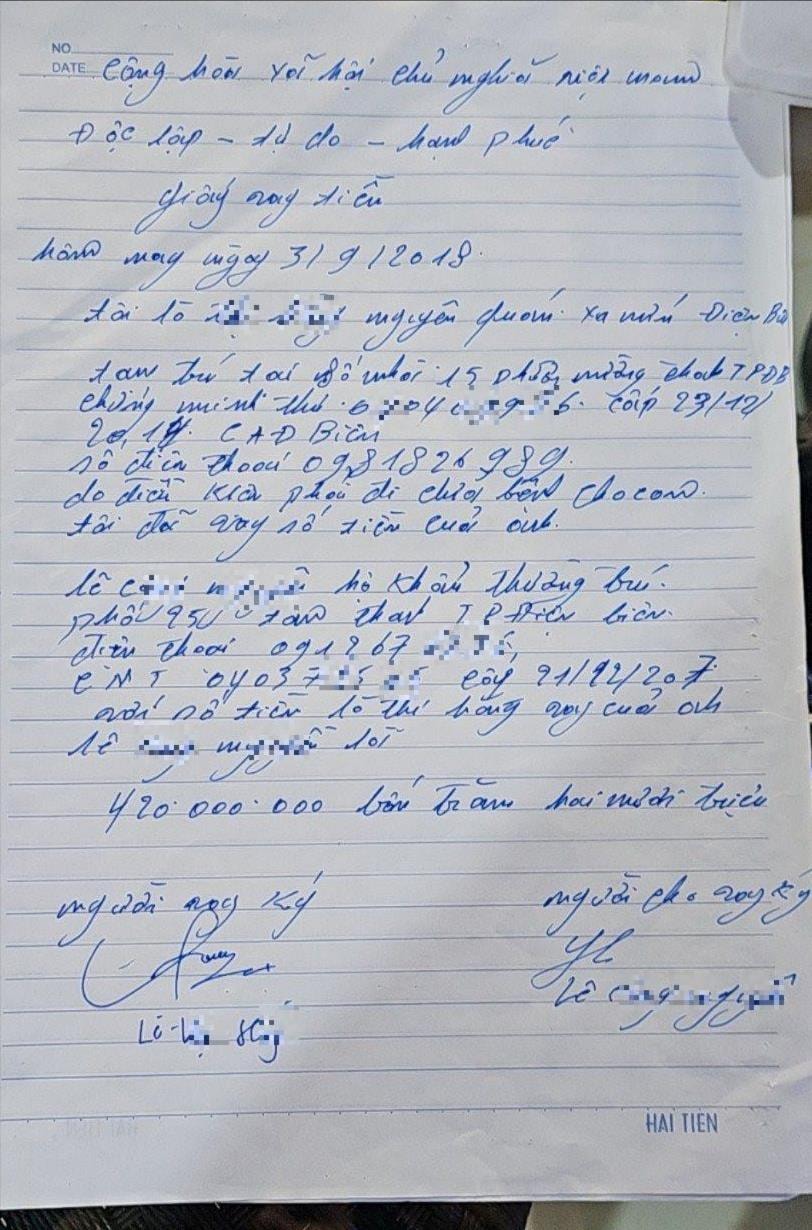 NO.
DATE
cộng hòa xã hội chủ nghĩa việt nam
Độc lập - tự do - hạnh phúc
giấy vay tiền
hôm nay ngày 3/9/2018.
tôi là nguyên quán. xa Điện Biên
tạm trú tại số nhà 15 phường mường thanh TPĐB
chứng minh thư cấp 23/12/
CAĐ Biên
số điện thoại 0981826989.
do điều kiện phải đi chữa bệnh cho con.
tôi đã vay số tiền của anh.
lê hộ khẩu thường trú.
phố thanh TP Điện biên.
điện thoại 091267
CMT 04037 cấy 21/12/207
với số tiền là của anh
lê
420.000.000 bốn trăm hai mươi triệu
người vay ký
người cho vay ký
lê
HAI TIEN